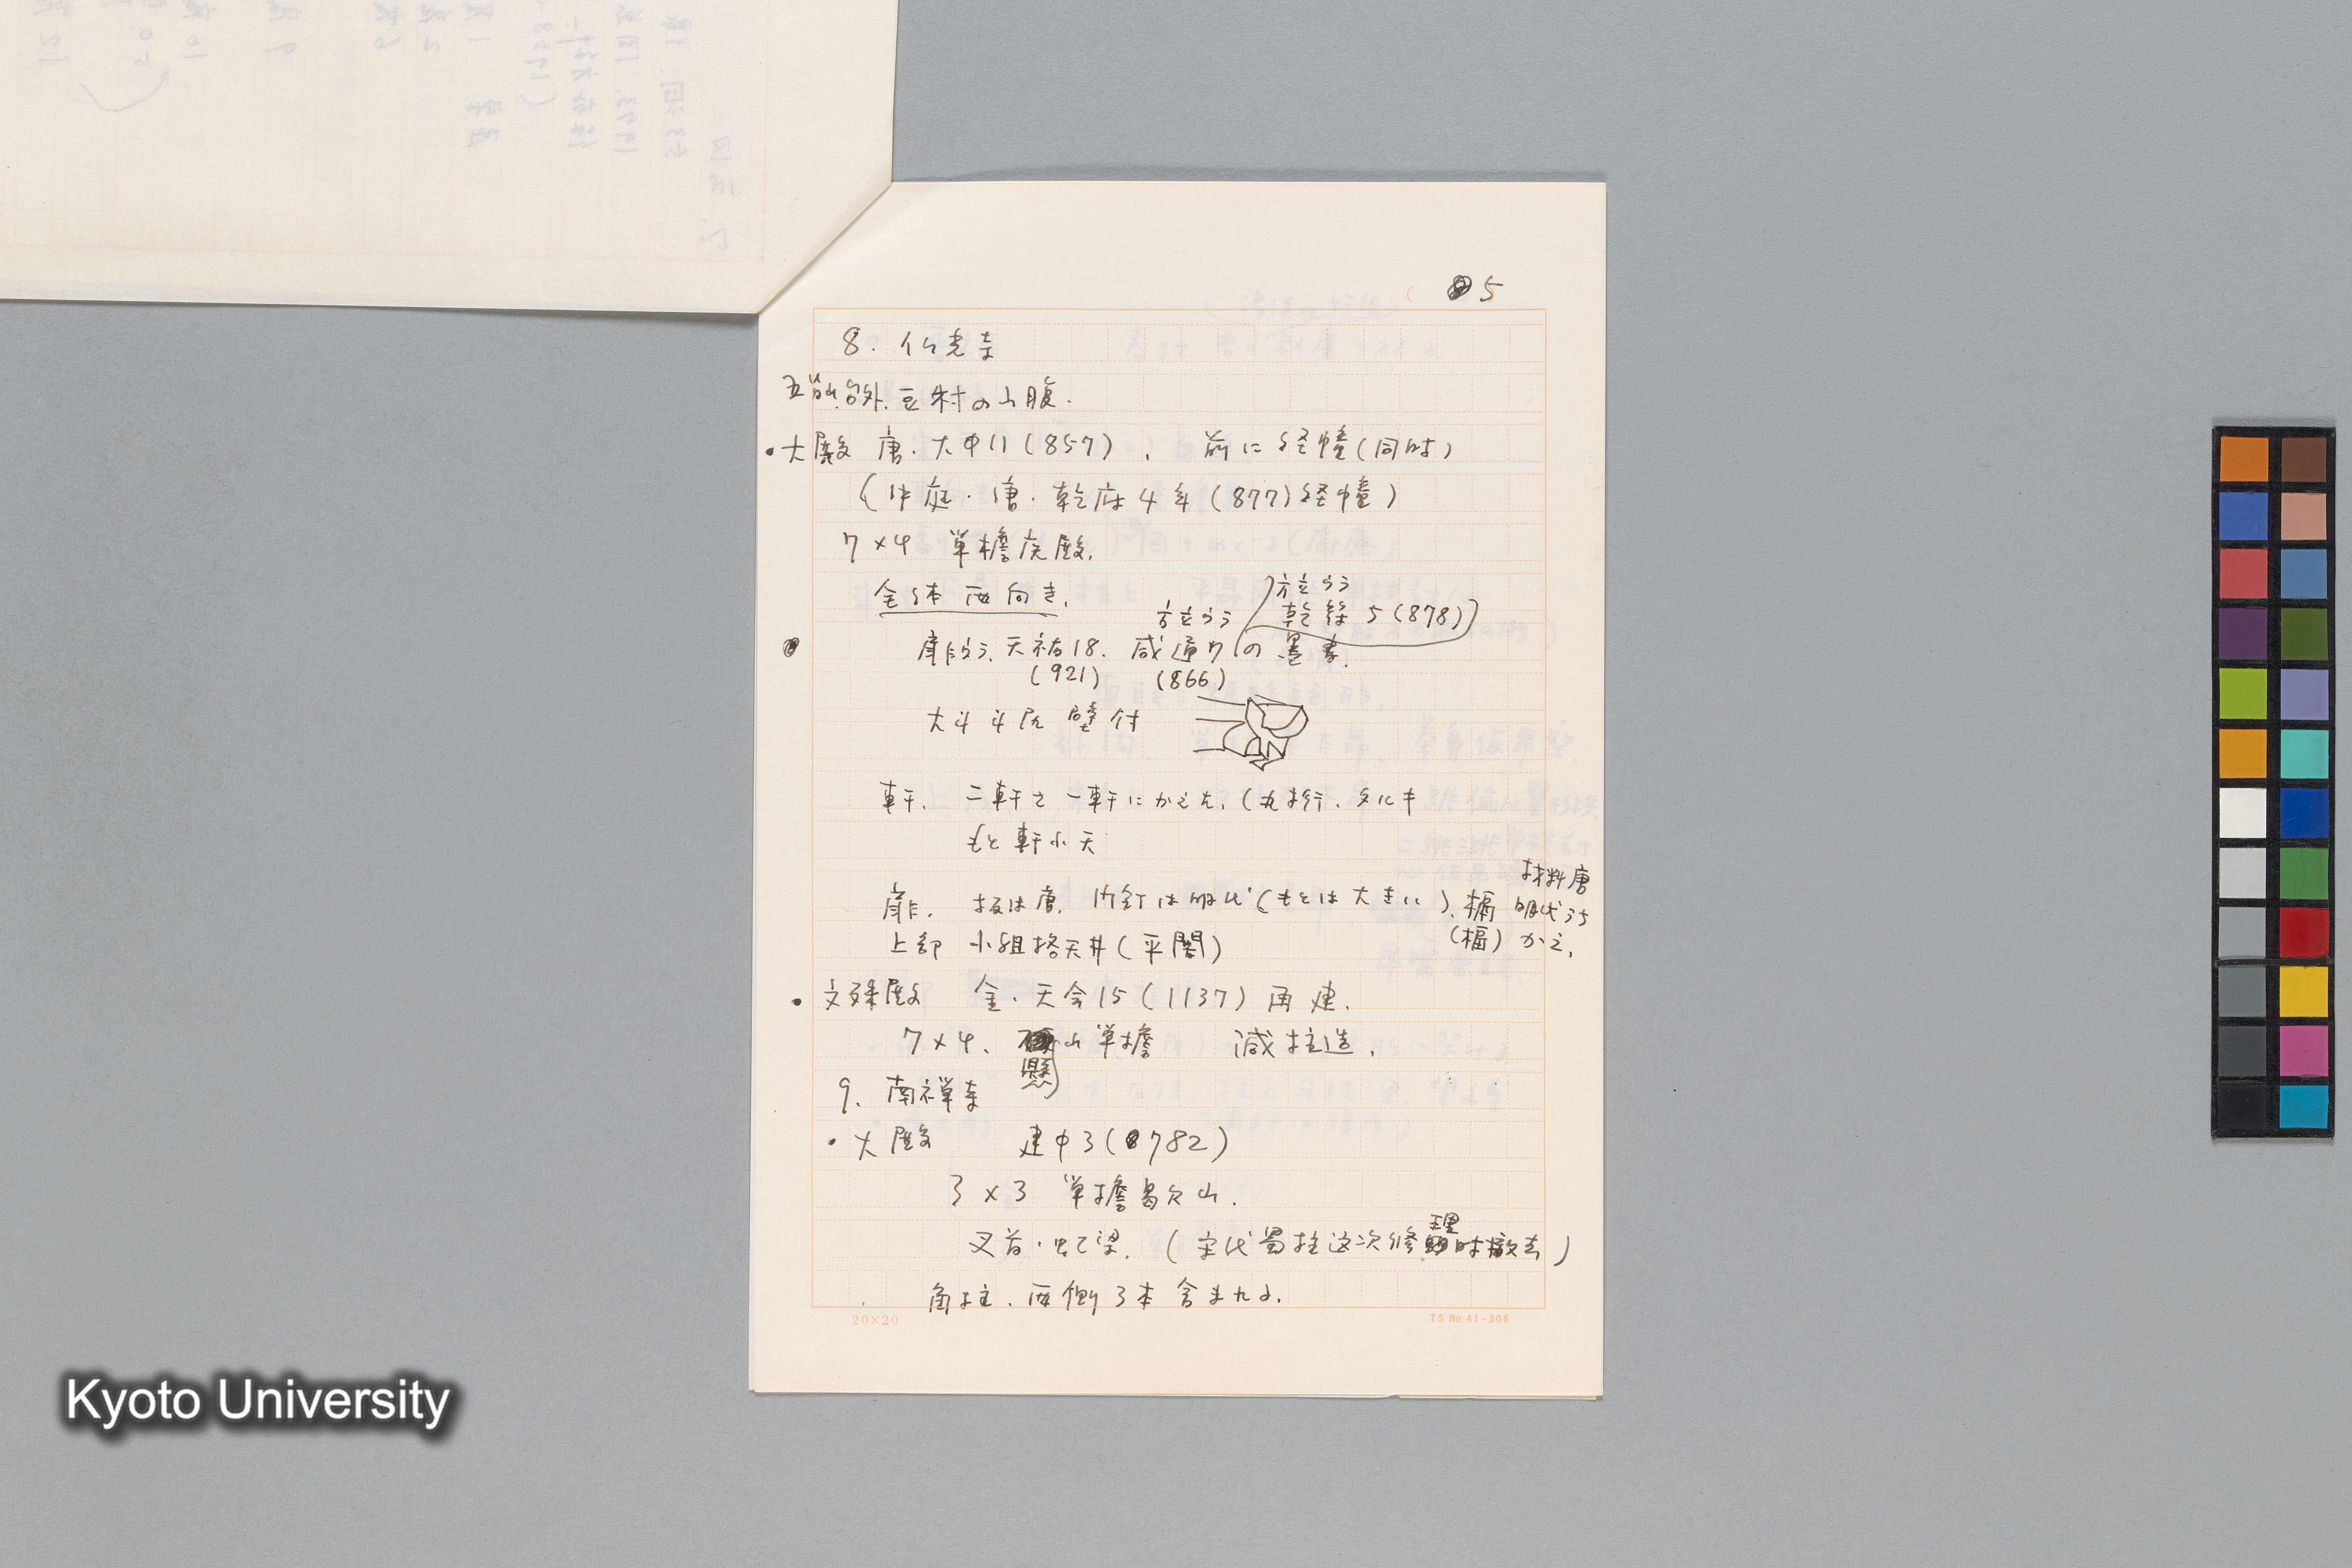 5
8. 仏光寺
五台山台外豆村の山腹.
・大殿 唐.大中11(857), 前に経幢(同時)
(中庭・唐・乾府4年(877)経幢)
7×4 単檐庑殿.
全体西向き.
方立うラ
乾符5(878)
方立うラ
扉うラ.天祐18. 咸通7の墨書.
(921) (866)
大斗斗尻壁付
軒. 二軒を一軒にかえた.(丸桁.
もと軒小天
材料唐
扉. 板は唐. 釘は明代(もとは大きい).槅 明代うち
上部 小組格天井(平闇) (槅) かえ.
・文殊殿 金.天会15(1137)再建.
7×4、 懸山単檐 減柱造.
9. 南禅寺
・大殿 建中3(782)
3×3 単檐曷欠山.
叉首・虹梁. (宋代蜀柱这次修理時撤去)
角柱.西側3本含まれる.
20×20
TS No.41-306
Kyoto University